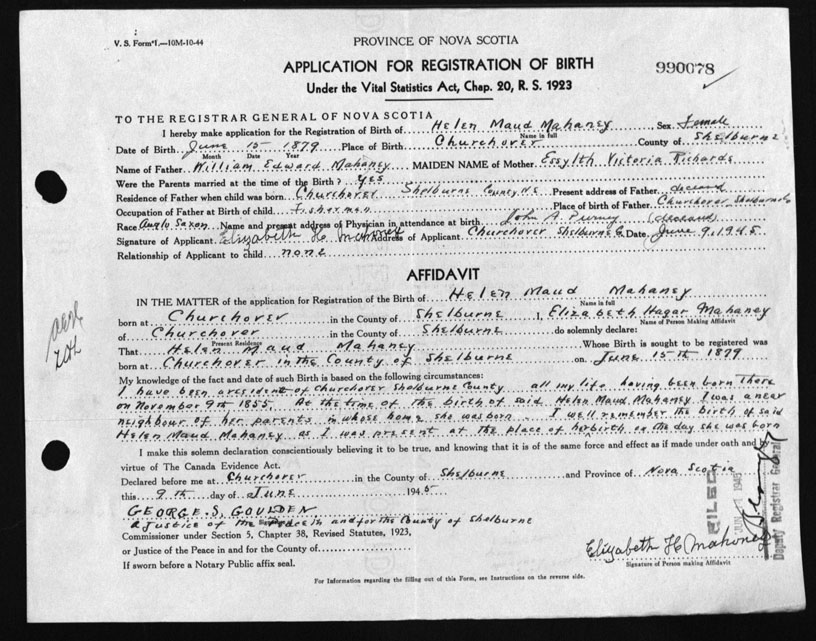 V. S. Form 1.—10M-10-44
PROVINCE OF NOVA SCOTIA
APPLICATION FOR REGISTRATION OF BIRTH
Under the Vital Statistics Act, Chap. 20, R. S. 1923
990078
TO THE REGISTRAR GENERAL OF NOVA SCOTIA
I hereby make application for the Registration of Birth of Helen Maud Mahaney, Sex Female
Name in full
Date of Birth June 15 1879 Place of Birth Churchover County of Shelburne
Month Date Year
Name of Father William Edward Mahaney MAIDEN NAME of Mother Essylth Victoria Richards
Were the Parents married at the time of the Birth? yes
Residence of Father when child was born Churchover Shelburne County N S Present address of Father deceased
Occupation of Father at Birth of child Fisherman Place of birth of Father Churchover Shelburne Co
Race Anglo Saxon Name and present address of Physician in attendance at birth John A. Purney (deceased)
Signature of Applicant Elizabeth H Mahoney Address of Applicant Churchover Shelburne Co. Date June 9. 1945
Relationship of Applicant to child none
AFFIDAVIT
IN THE MATTER of the application for Registration of the Birth of Helen Maud Mahaney
Name in full
born at Churchover in the County of Shelburne I, Elizabeth Hagar Mahaney
Name of Person Making Affidavit
of Churchover in the County of Shelburne do solemnly declare:
Present Residence
That Helen Maud Mahaney Whose Birth is sought to be registered was
born at Churchover in the County of Shelburne on June 15th 1879
My knowledge of the fact and date of such Birth is based on the following circumstances:
I have been a resident of Churchover Shelburne County all my life having been born There
on November 9th 1855. At the time of the birth of said Helen Maud Mahaney I was a near
neighbour of her parents in whose home she was born I well remember the birth of said
Helen Maud Mahaney as I was present at the place of her birth on the day she was born
I make this solemn declaration conscientiously believing it to be true, and knowing that it is of the same force and effect as if made under oath and by
virtue of The Canada Evidence Act.
Declared before me at Churchover in the County of Shelburne and Province of Nova Scotia
this 9th day of June 1945
GEORGE. S. GOULDEN
a Justice of the Peace in and for the County of Shelburne
Commissioner under Section 5, Chapter 38, Revised Statutes, 1923,
or Justice of the Peace in and for the County of
If sworn before a Notary Public affix seal.
Elizabeth H Mahoney
Signature of Person making Affidavit
For Information regarding the filling out of this Form, see Instructions on the reverse side.
FILED
JUN 1945
Deputy Registrar General